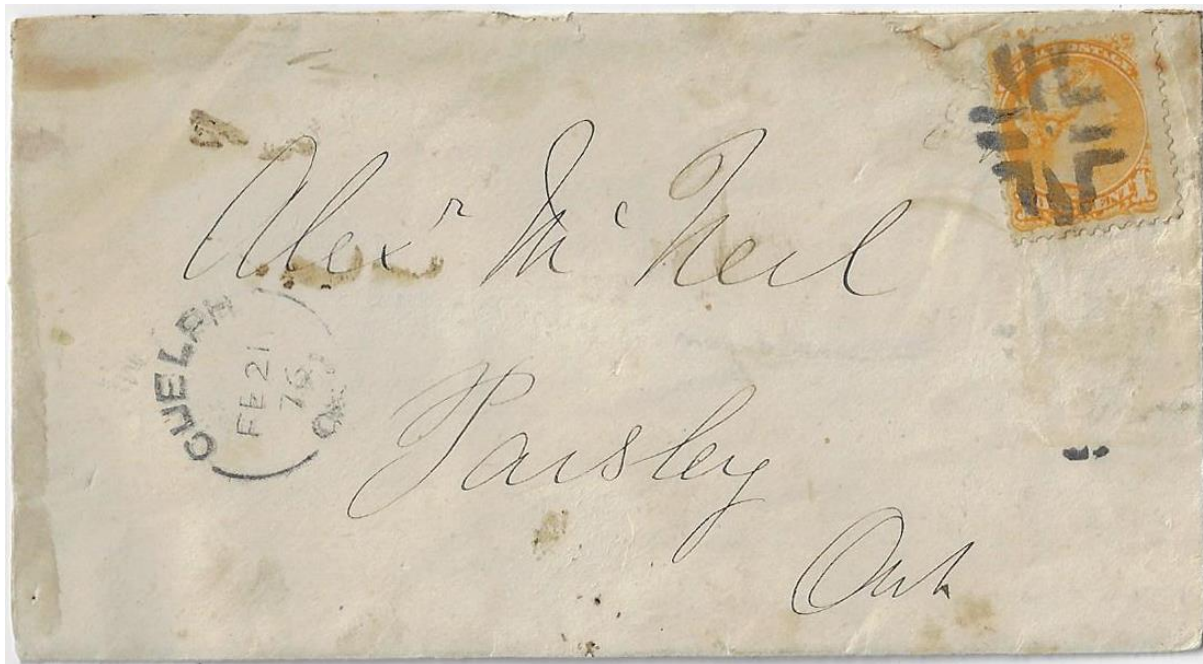 POSTAGE
1
Alexr Mc Neil
GUELPH
FE 21
76
ONT
Paisley
Ont